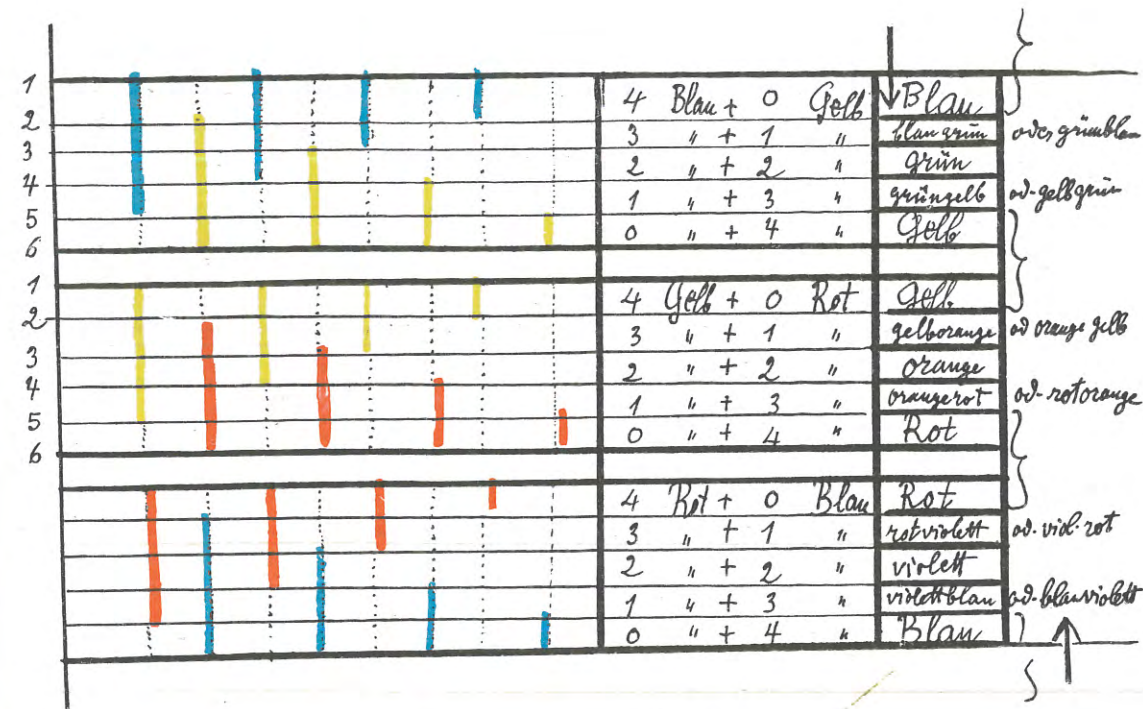 1
4 Blau + 0 Gelb Blau
2
3 " + 1 " blaugrün oder grünblau
3
2 " + 2 " grün
4
1 " + 3 " grüngelb od-gelbgrün
5
0 " + 4 " Gelb
6
1
4 Gelb + 0 Rot Gelb
2
3 " + 1 " gelborange od orange gelb
3
2 " + 2 " orange
4
1 " + 3 " orangerot od-rotorange
5
0 " + 4 " Rot
6
4 Rot + 0 Blau Rot
3 " + 1 " rotviolett od-viol-rot
2 " + 2 " violett
1 " + 3 " violettblau od-blauviolett
0 " + 4 " Blau